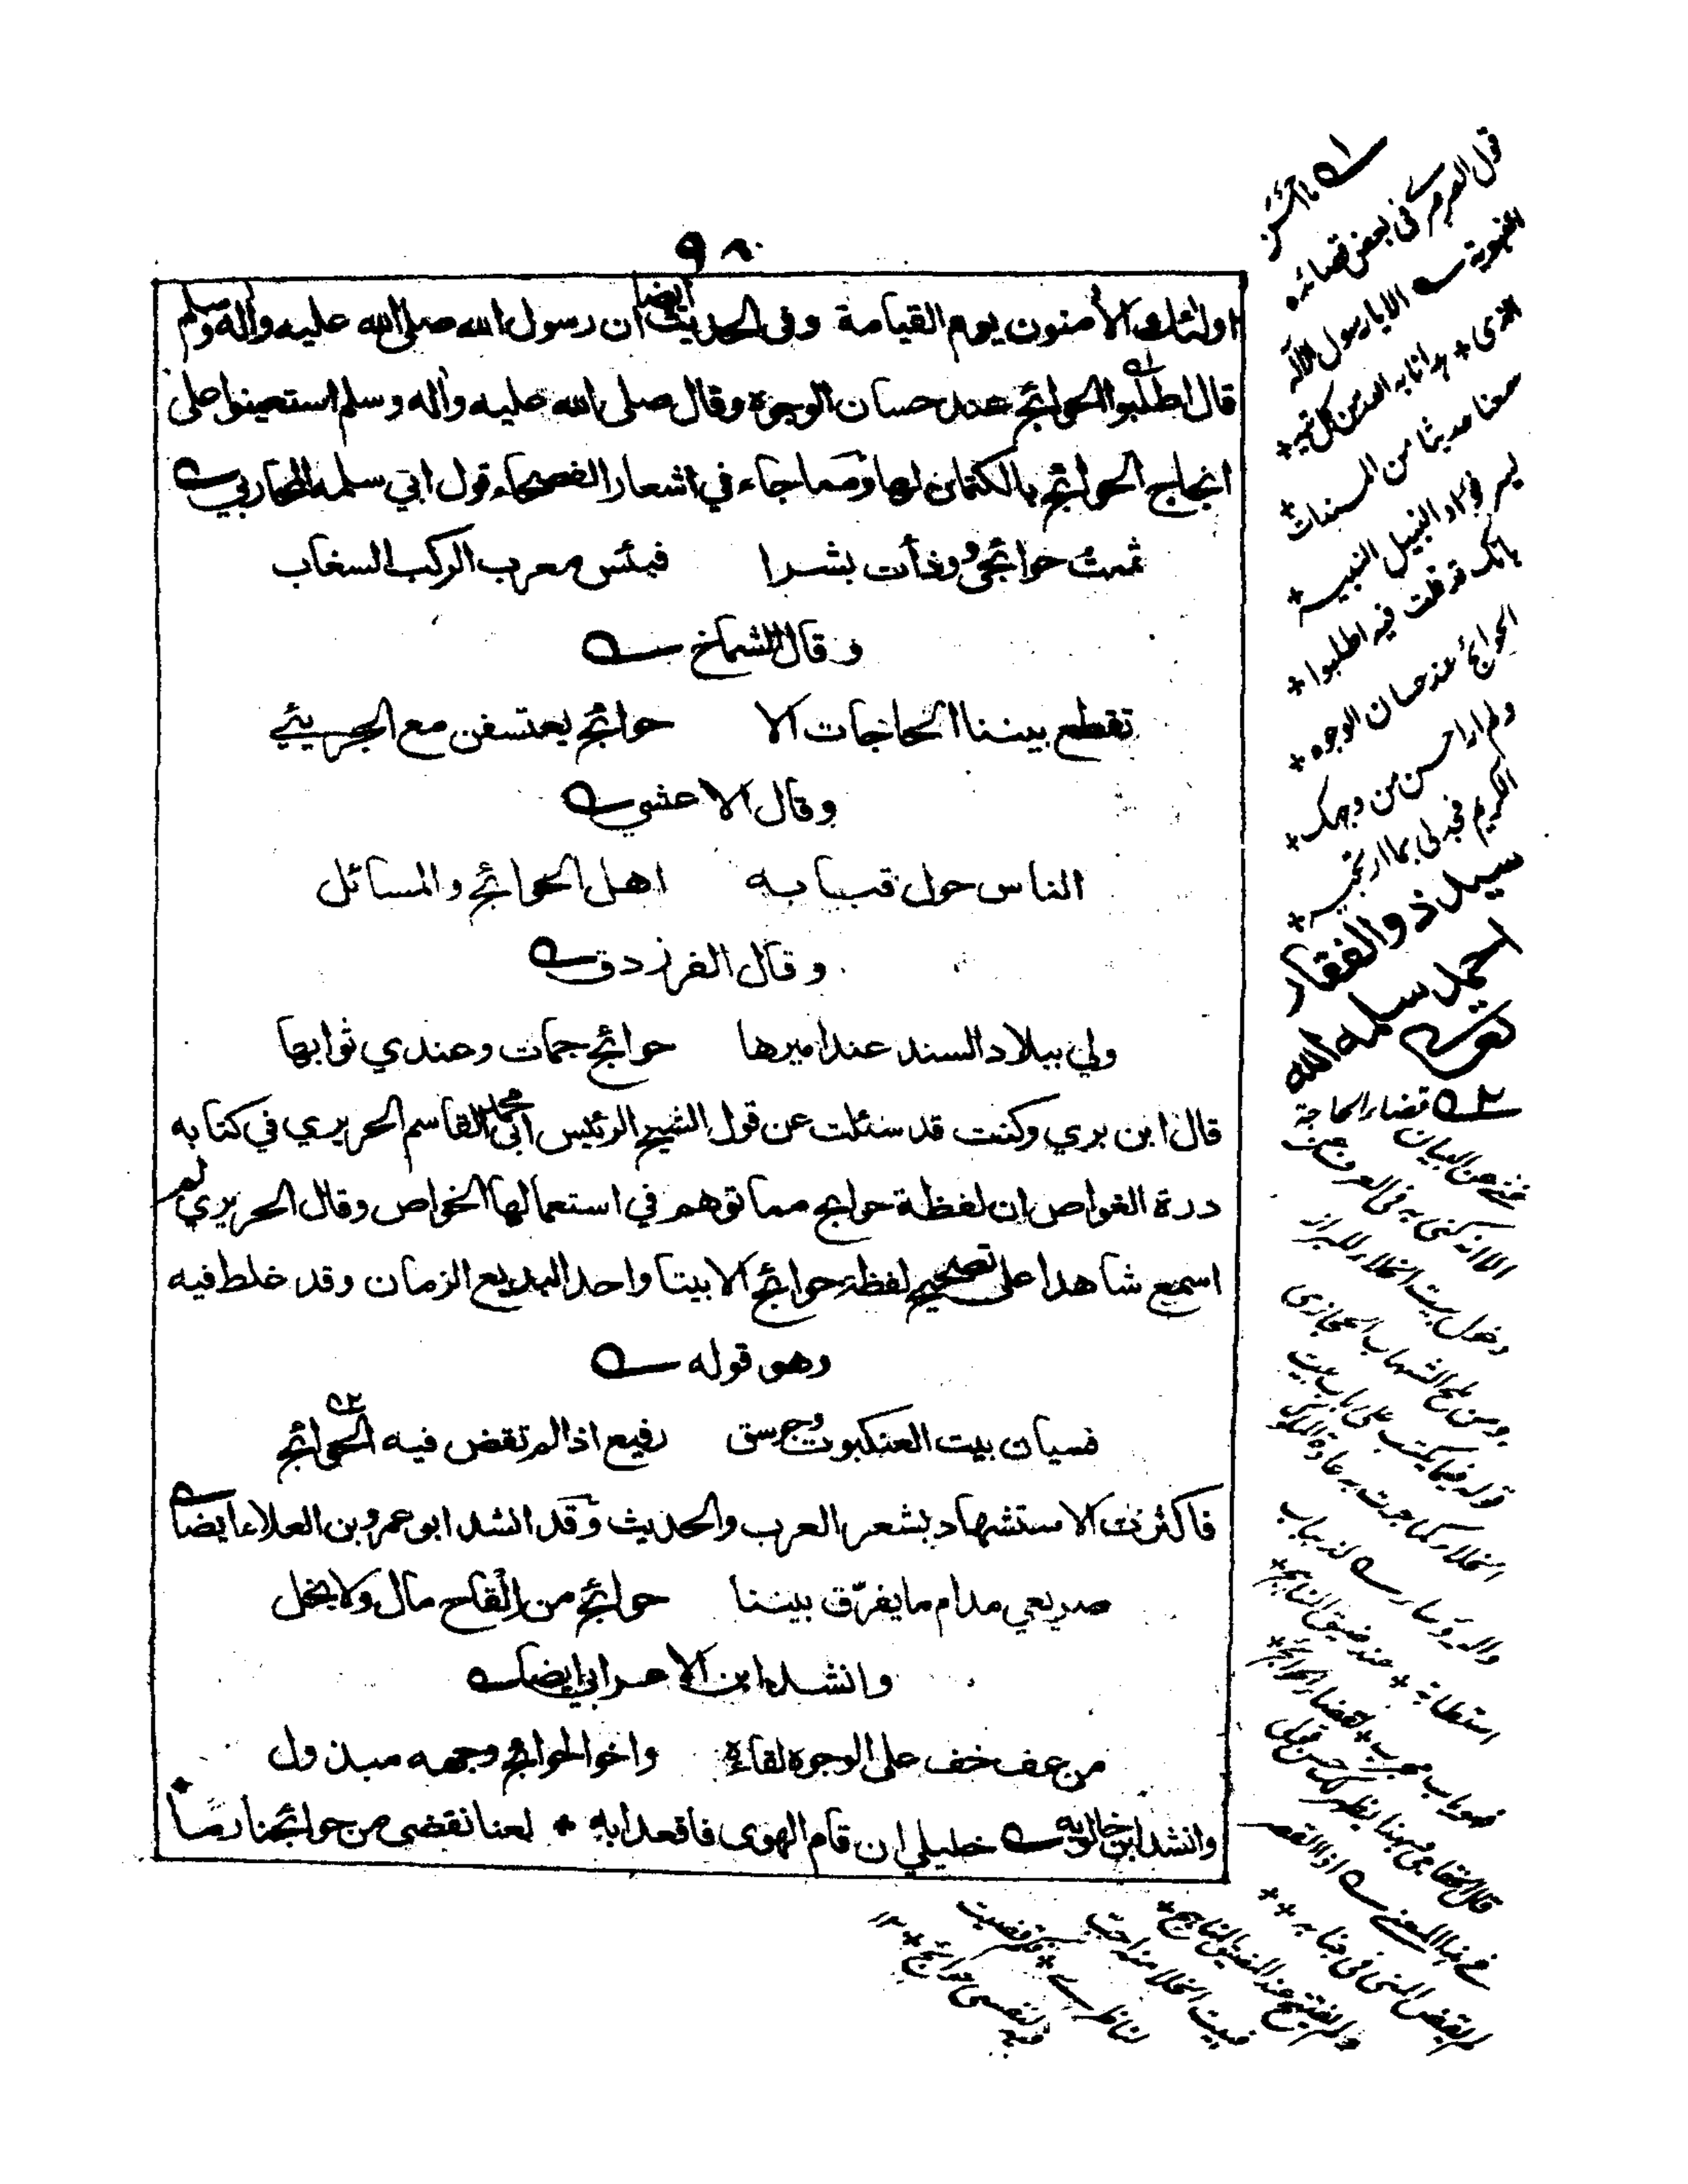 ٩٨
اولئك الأمنون يوم القيامة وفى الحديث ايضا ان رسول الله صلى الله عليه وآله وسلم
قال اطلبوا الحوائج عند حسان الوجوه وقال صلى الله عليه وآله وسلم استعينوا على
انجاح الحوائج بالكتمان لها ومما جاء في اشعار الفصحاء قول ابي سلمه المحاربي
ثممت حوائجي ووذأت بشرا فبئس معرب الركب السغاب
وقال الشماخ
تقطع بيننا الحاجات الا حوائج يعتسفن مع الجريئي
وقال الاعشي
الناس حول قبابه اهل الحوائج والمسائل
وقال الفرزدق
ولي ببلاد السند عند اميرها حوائج جمات وعندي ثوابها
قال ابن بري وكنت قد سئلت عن قول الشيخ الرئيس ابى محمد القاسم الحريري في كتابه
درة الغواص ان لفظة حوايج مما توهم في استعمالها الخواص وقال الحريري لم
اسمع شاهدا على تصحيح لفظة حوائج الا بيتا واحد البديع الزمان وقد غلط فيه
وهو قوله
فسيان بيت العنكبوت وجوسق رفيع اذا لم تقض فيه الحوائج
فاكثرت الاستشهاد بشعر العرب والحديث وقد انشد ابو عمرو بن العلاء ايضا
صريعي مدام ما يفرّق بيننا حوائج من القاح مال ولا نخل
وانشد ابن الاعرابي ايضا
من عف خف على الوجوه لقاءه واخو الحوائج وجهه مبذول
وانشد ابن خالويه خليلي ان قام الهوى فاقعدا به لعنا نقضى من حوائجنا رمّا
ما احسن
قول العرم في بعض قصائده
النبوية الا يا رسول الآله
الذى هدانا به الله من كل تيه
سمعنا حديثا من المسندات
يسر فواد النبيل النبيه
بانك قد قلت فيه اطلبوا
الحوائج عند حسان الوجوه
ولم ار احسن من وجهك
الكريم فجد لي بما ارتجيه
سيد ذو الفقار
احمد سلمه الله
قضاء الحاجة
غني عن البيان
الا انه كنى به فى العرف عن
دخول بيت الخلاء للبراز
ومن ملح الشهاب الحجازى
قوله فيما يكتب على باب بيت
الخلاء كما جرت به عادة الملوك